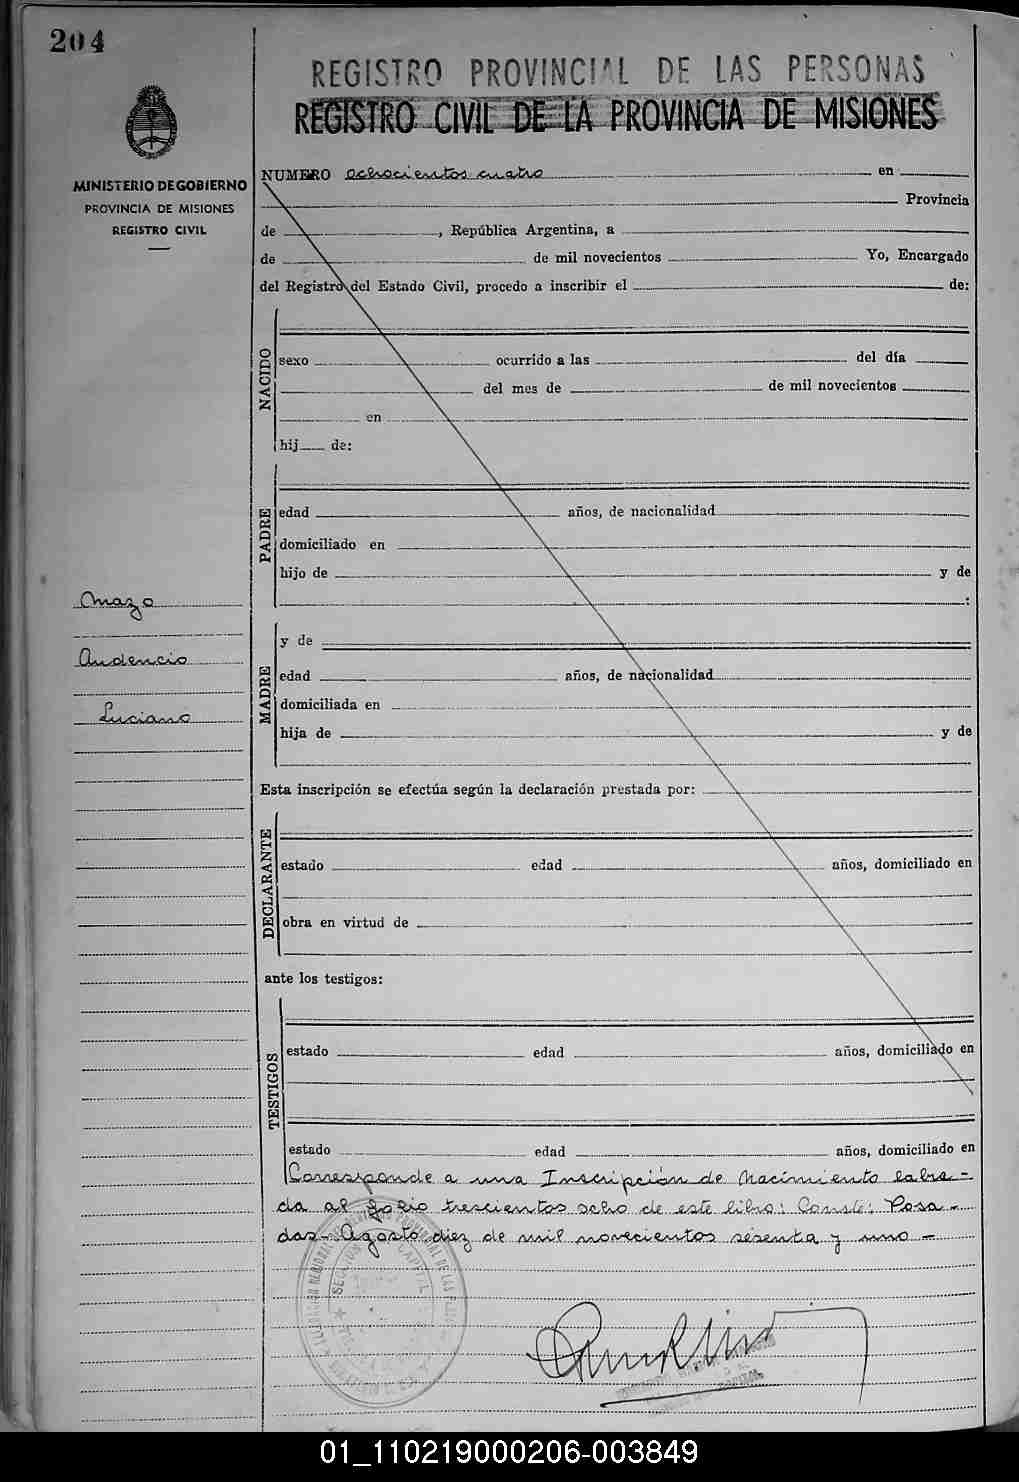 204
REGISTRO PROVINCIAL DE LAS PERSONAS
REGISTRO CIVIL DE LA PROVINCIA DE MISIONES
MINISTERIO DE GOBIERNO
PROVINCIA DE MISIONES
REGISTRO CIVIL
NUMERO ochocientos cuatro en
Provincia
de , República Argentina, a
de de mil novecientos Yo, Encargado
del Registro del Estado Civil, procedo a inscribir el de:
NACIDO
sexo ocurrido a las del día
del mes de de mil novecientos
en
hij de:
PADRE
edad años, de nacionalidad
domiciliado en
hijo de y de
:
Mazo
Audencio
Luciano
MADRE
y de
edad años, de nacionalidad
domiciliada en
hija de y de
Esta inscripción se efectúa según la declaración prestada por:
DECLARANTE
estado edad años, domiciliado en
obra en virtud de
ante los testigos:
TESTIGOS
estado edad años, domiciliado en
estado edad años, domiciliado en
Corresponde a una Inscripción de Nacimiento labra-
da al folio trescientos ocho de este libro: Conste: Posa-
das- Agosto diez de mil novecientos sesenta y uno-
SECCION CAPITAL
CAPITAL
01_110219000206-003849